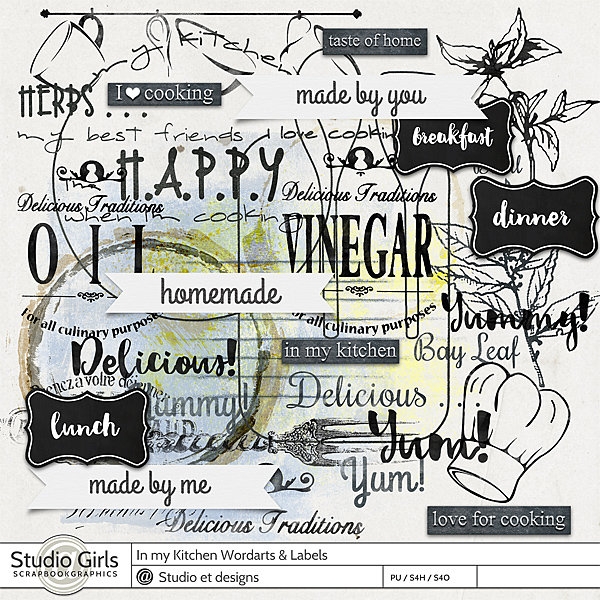 my kitchen
taste of home
I ♥ cooking
HERBS . . .
made by you
my best friends I love cooking
breakfast
H.A.P.P.Y
Delicious Traditions
Delicious Traditions
when I'm cooking
dinner
OIL
VINEGAR
homemade
For all culinary purposes
for all culinary purposes
Yummy!
Delicious!
in my kitchen
Bay Leaf
Prenez a votre déjeuner
Yummy!
Delicious . . .
lunch
AND
Yum!
Yum!
made by me
Delicious Traditions
love for cooking
Studio Girls
SCRAPBOOKGRAPHICS
In my Kitchen Wordarts & Labels
@ Studio et designs
PU / S4H / S4O